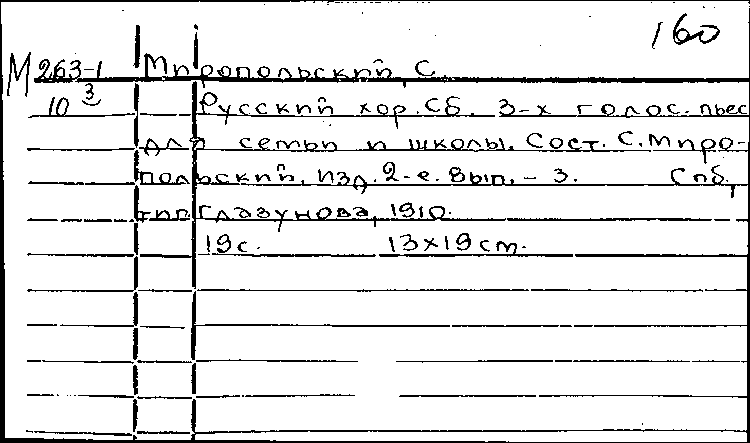 160
М 263-1 Миропольский, С.
10 3 Русский хор. Сб. 3-х голос. пьес
для семьи и школы. Сост. С. Миро-
польский. Изд. 2-е. Вып. - 3. Спб,
тип Глазунова, 1910.
19 с. 13x19 cm.